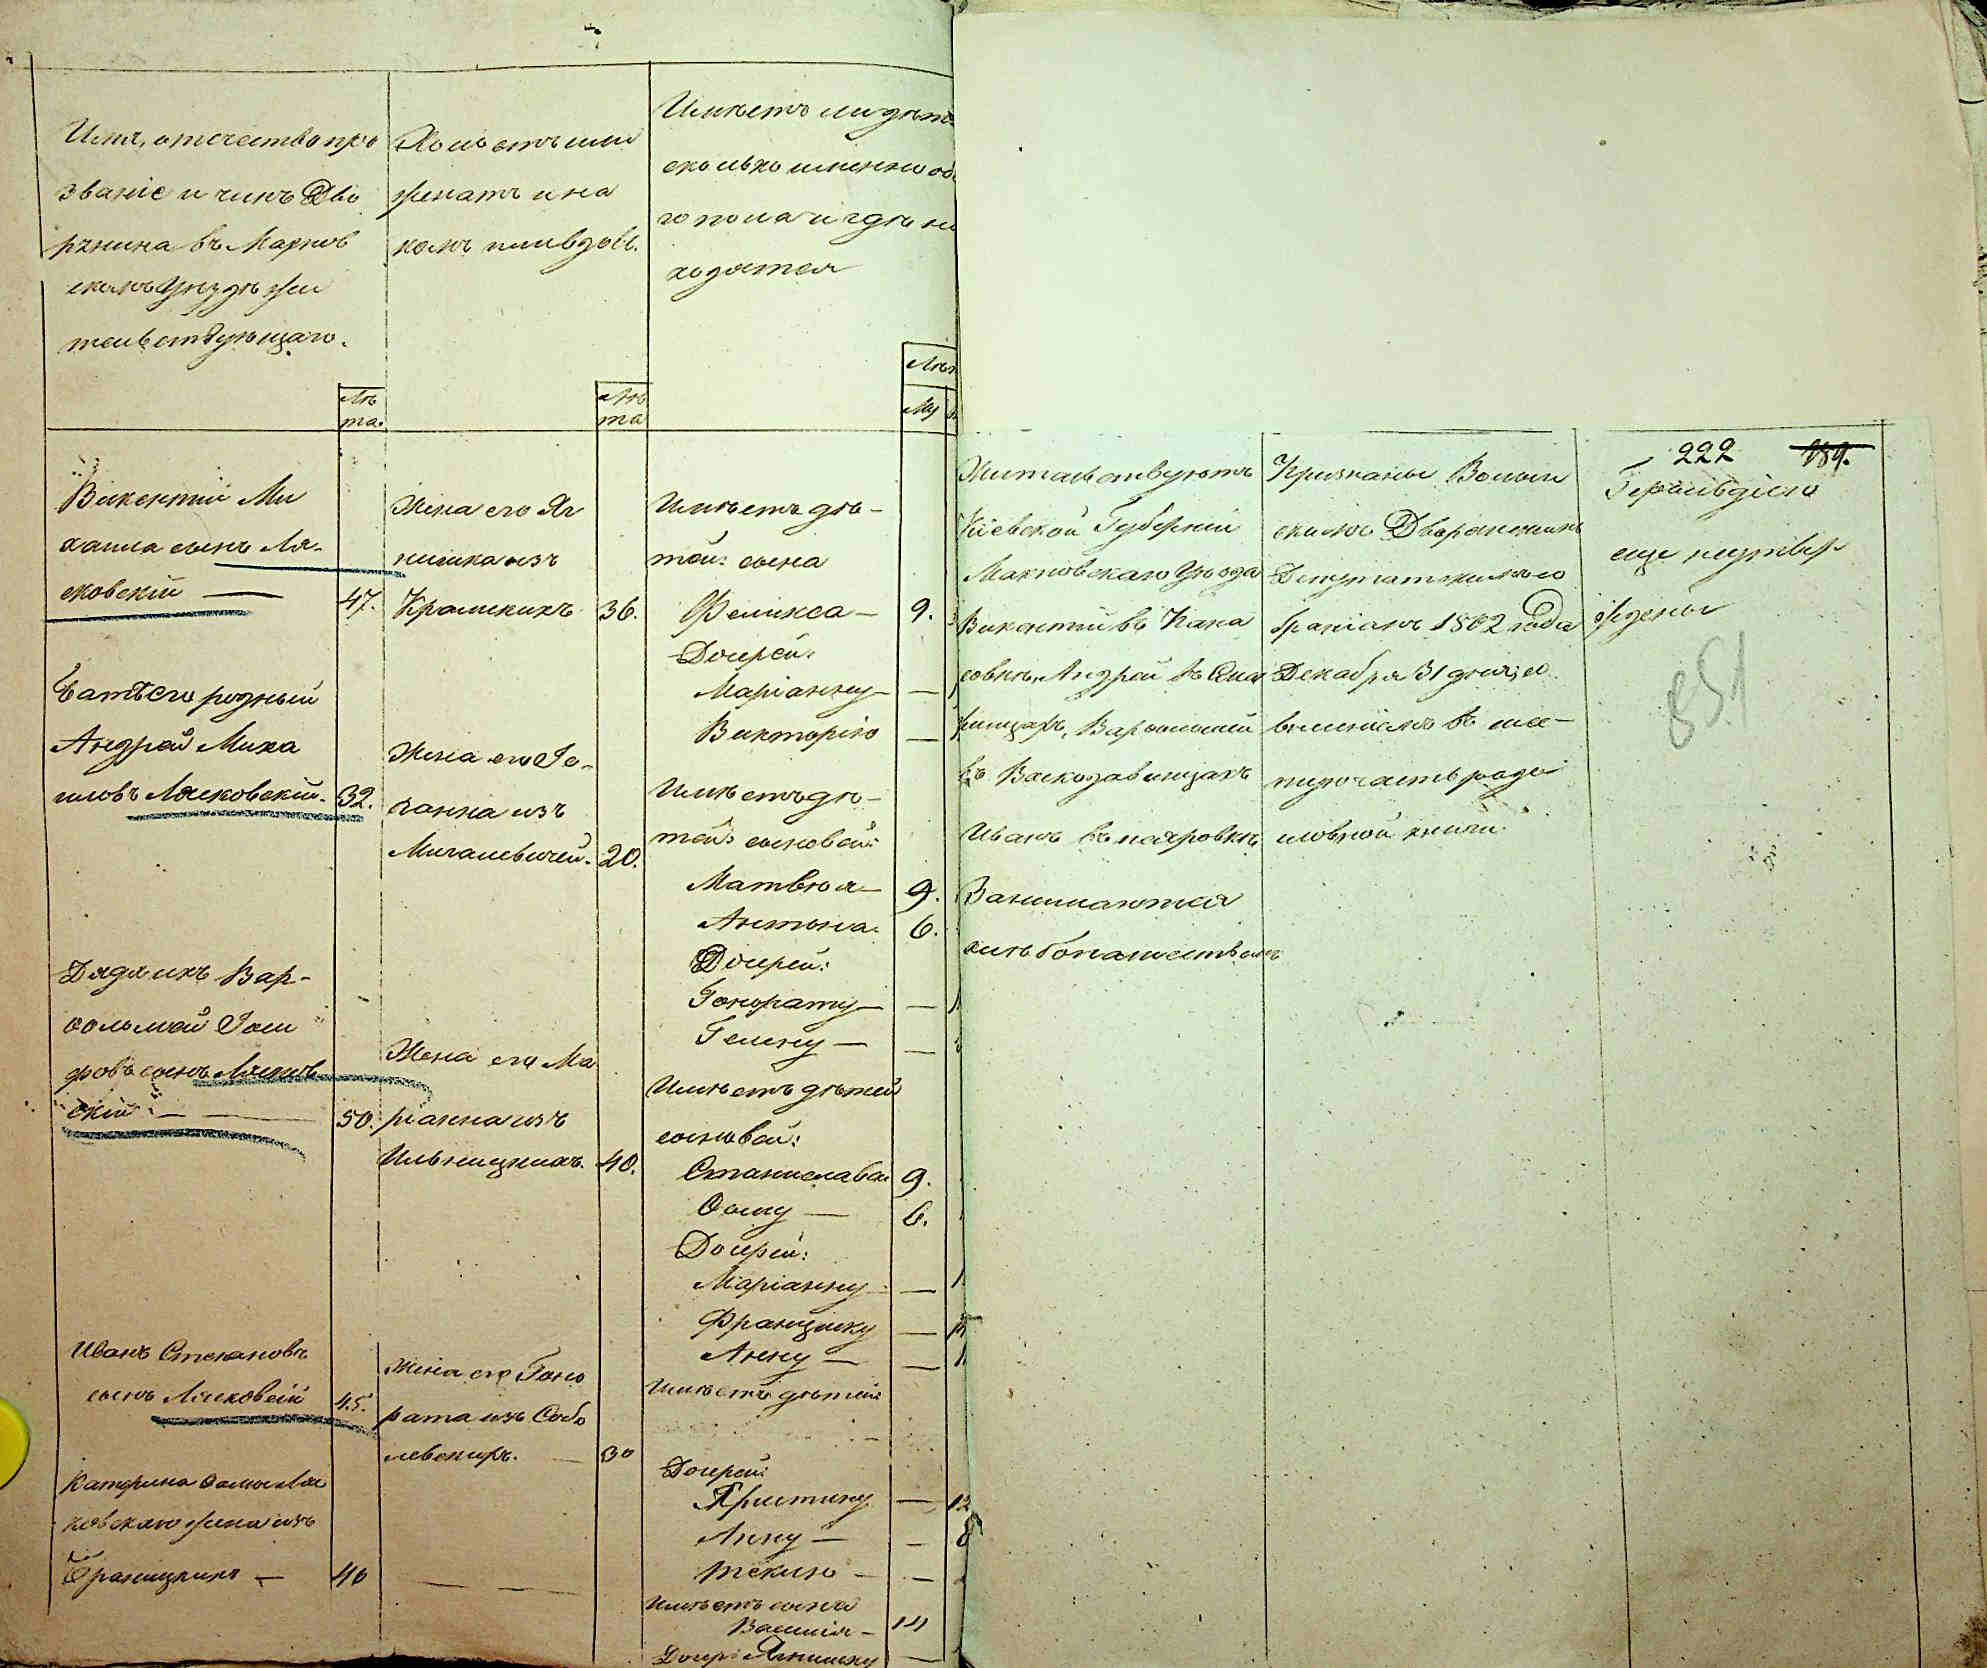 Имя, отчество про
званіе и чинъ Дво
рянина въ Махнов
скомъ Уѣздѣ жи
тельствующаго.
Лѣ
та.
Холостъ или
женатъ и на
комъ или вдовъ.
Лѣ
та
Имѣетъ ли дѣте
сколько именно об
го пола и гдѣ на
ходятся
Лѣт
Му
Викентій Ми
хаила сынъ Ля-
сковскій —
47.
Жена его Яг
нишка изъ
Крамскихъ
36.
Имѣетъ дѣ-
тей: сына
Феликса —
9.
Дочерей:
Маріанну —
Викторію —
Братъ его родный
Андрей Миха
иловъ Лясковскій.
32.
Жена его Іо-
ганна изъ
Михалевичей.
20.
Имѣетъ дѣ-
тей: сыновей:
Матвѣя —
9.
Антона.
6.
Дочерей:
Гонорату —
Гелену —
Дядя ихъ Вар-
фоломей
ровъ сынъ Лясков
скій —
50.
Жена его Ма
ріанна изъ
Ильницкихъ.
40.
Имѣетъ дѣтей
сыновей:
Станислава
9.
Фому —
6.
Дочерей:
Маріанну —
Францишку —
Анну —
Иванъ Степановъ
сынъ Лясковскій
45.
Жена его Гоно
рата изъ Собо
левскихъ. —
30
Имѣетъ дѣтей:
Дочерей:
Христину —
12
Анну —
8
Теклю —
Катерина Фомы Ляс
ковскаго жена изъ
Браницкихъ —
40
Имѣетъ сына
Василія —
14
Дочерь Ягнишку —
Жительствуютъ
Кіевской Губерніи
Махновскаго Уѣзда
Викентій въ
Андрей въ
Варфоломей
въ
Иванъ въ
Занимаются
хлѣбопашествомъ
Признаны Волын
скимъ Дворянскимъ
Депутатскимъ Со
браніемъ 1802 года
Декабря 31 дня, со
внесеніемъ въ шес-
тую часть родо
словной книги.
222
189.
Герольдіею
еще неутвер
ждены
851